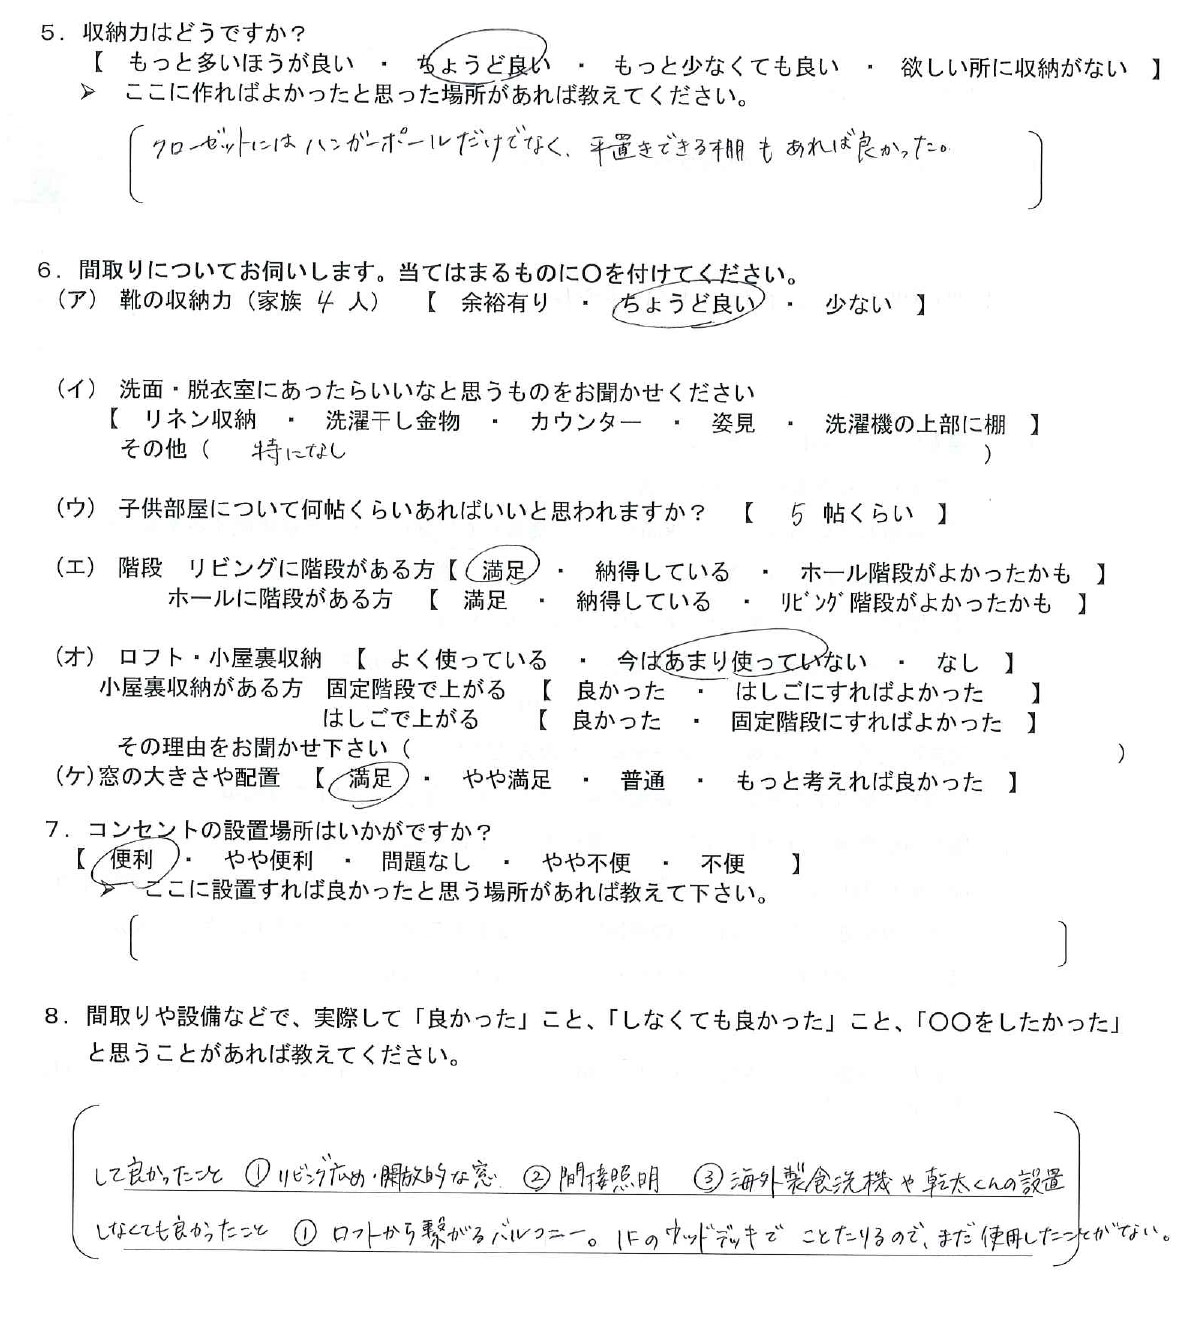 ５．収納力はどうですか？
【　もっと多いほうが良い　・　ちょうど良い　・　もっと少なくても良い　・　欲しい所に収納がない　】
➢　ここに作ればよかったと思った場所があれば教えてください。
クローゼットにはハンガーポールだけでなく、平置きできる棚もあれば良かった。
６．間取りについてお伺いします。当てはまるものに〇を付けてください。
（ア）　靴の収納力（家族　4　人）　【　余裕有り　・　ちょうど良い　・　少ない　】
（イ）　洗面・脱衣室にあったらいいなと思うものをお聞かせください
【　リネン収納　・　洗濯干し金物　・　カウンター　・　姿見　・　洗濯機の上部に棚　】
その他（　特になし　）
（ウ）　子供部屋について何帖くらいあればいいと思われますか？　【　5　帖くらい　】
（エ）　階段　リビングに階段がある方【　満足　・　納得している　・　ホール階段がよかったかも　】
ホールに階段がある方　【　満足　・　納得している　・　ﾘﾋﾞﾝｸﾞ階段がよかったかも　】
（オ）　ロフト・小屋裏収納　【　よく使っている　・　今はあまり使っていない　・　なし　】
小屋裏収納がある方　固定階段で上がる　【　良かった　・　はしごにすればよかった　】
はしごで上がる　【　良かった　・　固定階段にすればよかった　】
その理由をお聞かせ下さい（　）
（ケ）窓の大きさや配置　【　満足　・　やや満足　・　普通　・　もっと考えれば良かった　】
７．コンセントの設置場所はいかがですか？
【　便利　・　やや便利　・　問題なし　・　やや不便　・　不便　】
➢　ここに設置すれば良かったと思う場所があれば教えて下さい。
８．間取りや設備などで、実際して「良かった」こと、「しなくても良かった」こと、「〇〇をしたかった」
と思うことがあれば教えてください。
して良かったこと　①リビング広め・開放的な窓　②間接照明　③海外製食洗機や乾太くんの設置
しなくても良かったこと　①ロフトから繋がるバルコニー。1Fのウッドデッキでことたりるので、まだ使用したことがない。